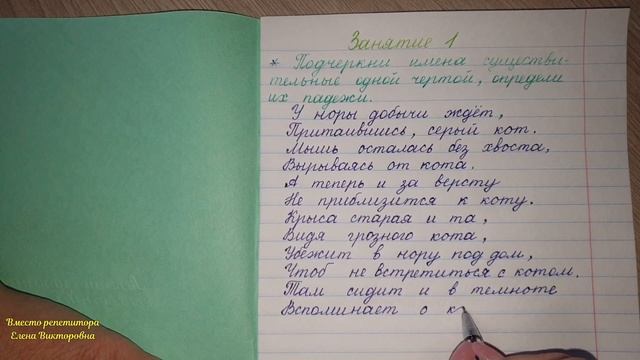 Занятие 1
* Подчеркни имена существи-
тельные одной чертой, определи
их падежи.
У норы добычи ждёт,
Притаившись, серый кот.
Мышь осталась без хвоста,
Вырываясь от кота.
А теперь и за версту
Не приблизится к коту.
Крыса старая и та,
Видя грозного кота,
Убежит в нору под дом,
Чтоб не встретиться с котом.
Там сидит и в темноте
Вспоминает о к
Вместо репетитора
Елена Викторовна